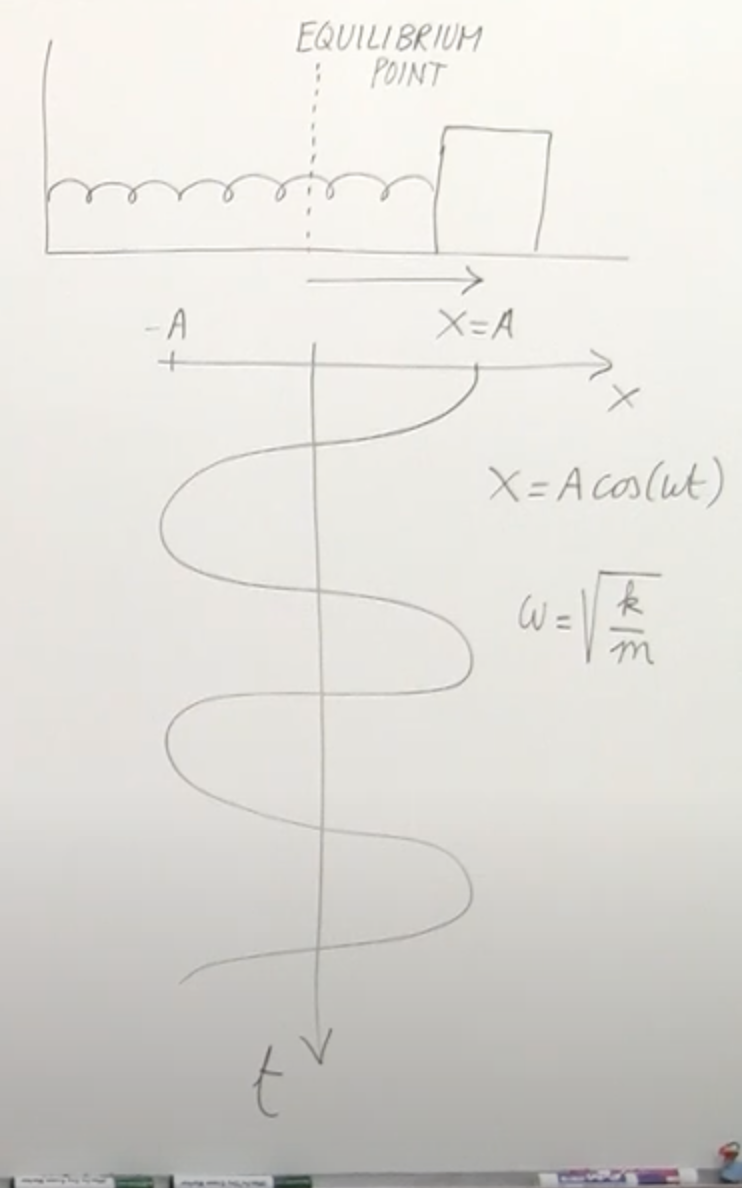 EQUILIBRIUM
POINT
-A
X=A
X
X=A cos(ωt)
ω=√k/m
t